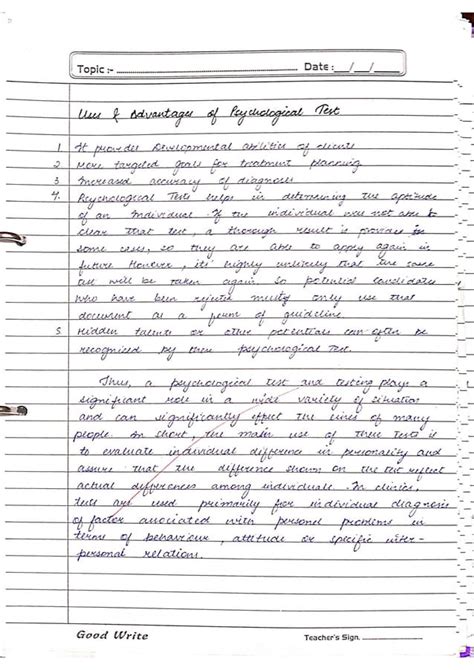 Topic :- Date : __/__/__
Uses & Advantages of Psychological Test
1 It provides Developmental abilities of clients
2 More targeted goals for treatment planning
3 Increased accuracy of diagnosis
4. Psychological Tests helps in determining the aptitude
of an Individual. If the individual was not able to
clear that test, a thorough result is provided in
some cases, so they are able to apply again in
future However, it's highly unlikely that the same
will be taken again so potential candidates
who have been rejected mostly only use that
document as a form of guideline.
5 Hidden talents or other potentials can often be
recognized by these psychological Test.
Thus, a psychological test and testing plays a
significant role in a wide variety of situation
and can significantly effect the lives of many
people. In short, the main use of these tests is
to evaluate individual difference in personality and
assure that the difference shown on the test reflect
actual differences among individuals. In clinics,
tests are used primarily for individual diagnosis
of factor associated with personal problems in
terms of behaviour, attitude or specific inter-
personal relation.
Good Write Teacher's Sign.